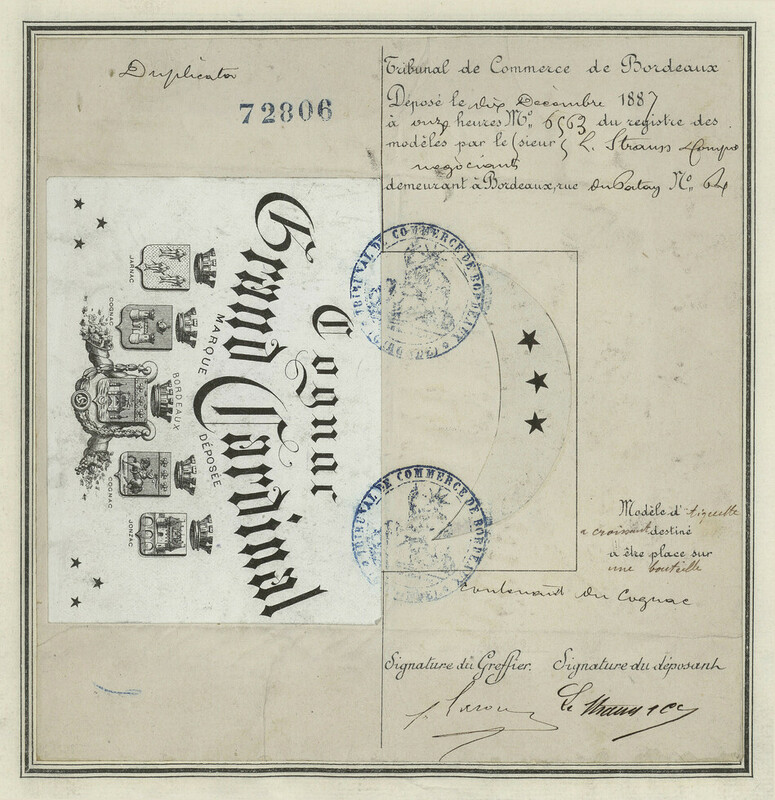 Duplicata
72806
Tribunal de Commerce de Bordeaux
Déposé le dix Decembre 1887
à onze heures Mⁿ. Nº 6563 du registre des
modèles par le Sieur L. Strauss & Compie
negociants
demeurant à Bordeaux, rue du Patay Nº 64
Cognac
Grand Cardinal
MARQUE DÉPOSÉE
JARNAC
COGNAC
BORDEAUX
COGNAC
JONZAC
TRIBUNAL DE COMMERCE DE BORDEAUX
TRIBUNAL DE COMMERCE DE BORDEAUX
Modèle d'étiquette
a croissant destiné
à être place sur
une bouteille
contenant du Cognac
Signature du Greffier. Signature du déposant
L. Strauss & Cº